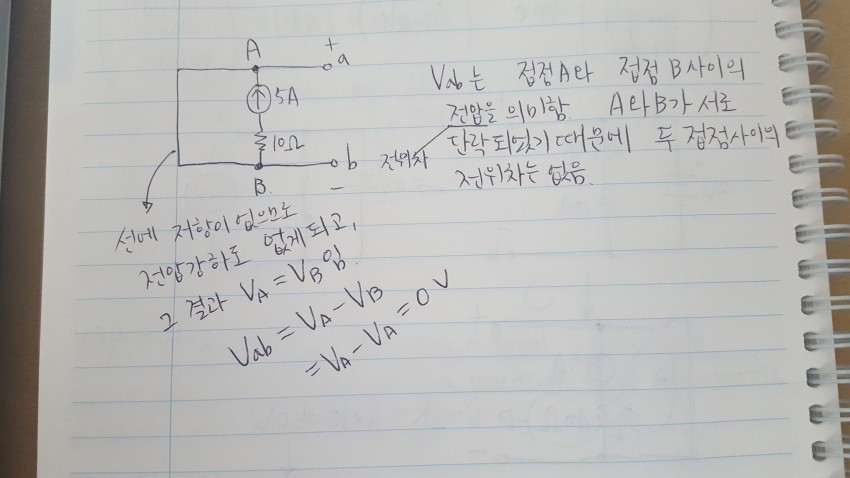 A
+
a
5A
10Ω
b
B.
−
Vab는 접점A와 접점 B사이의
전압을 의미함 A와B가 서로
전위차
단락되었기 때문에 두 접점사이의
전위차는 없음.
선에 저항이 없으므로
전압강하도 없게되고,
그 결과 VA = VB임.
Vab = VA − VB
= VA − VA = 0V